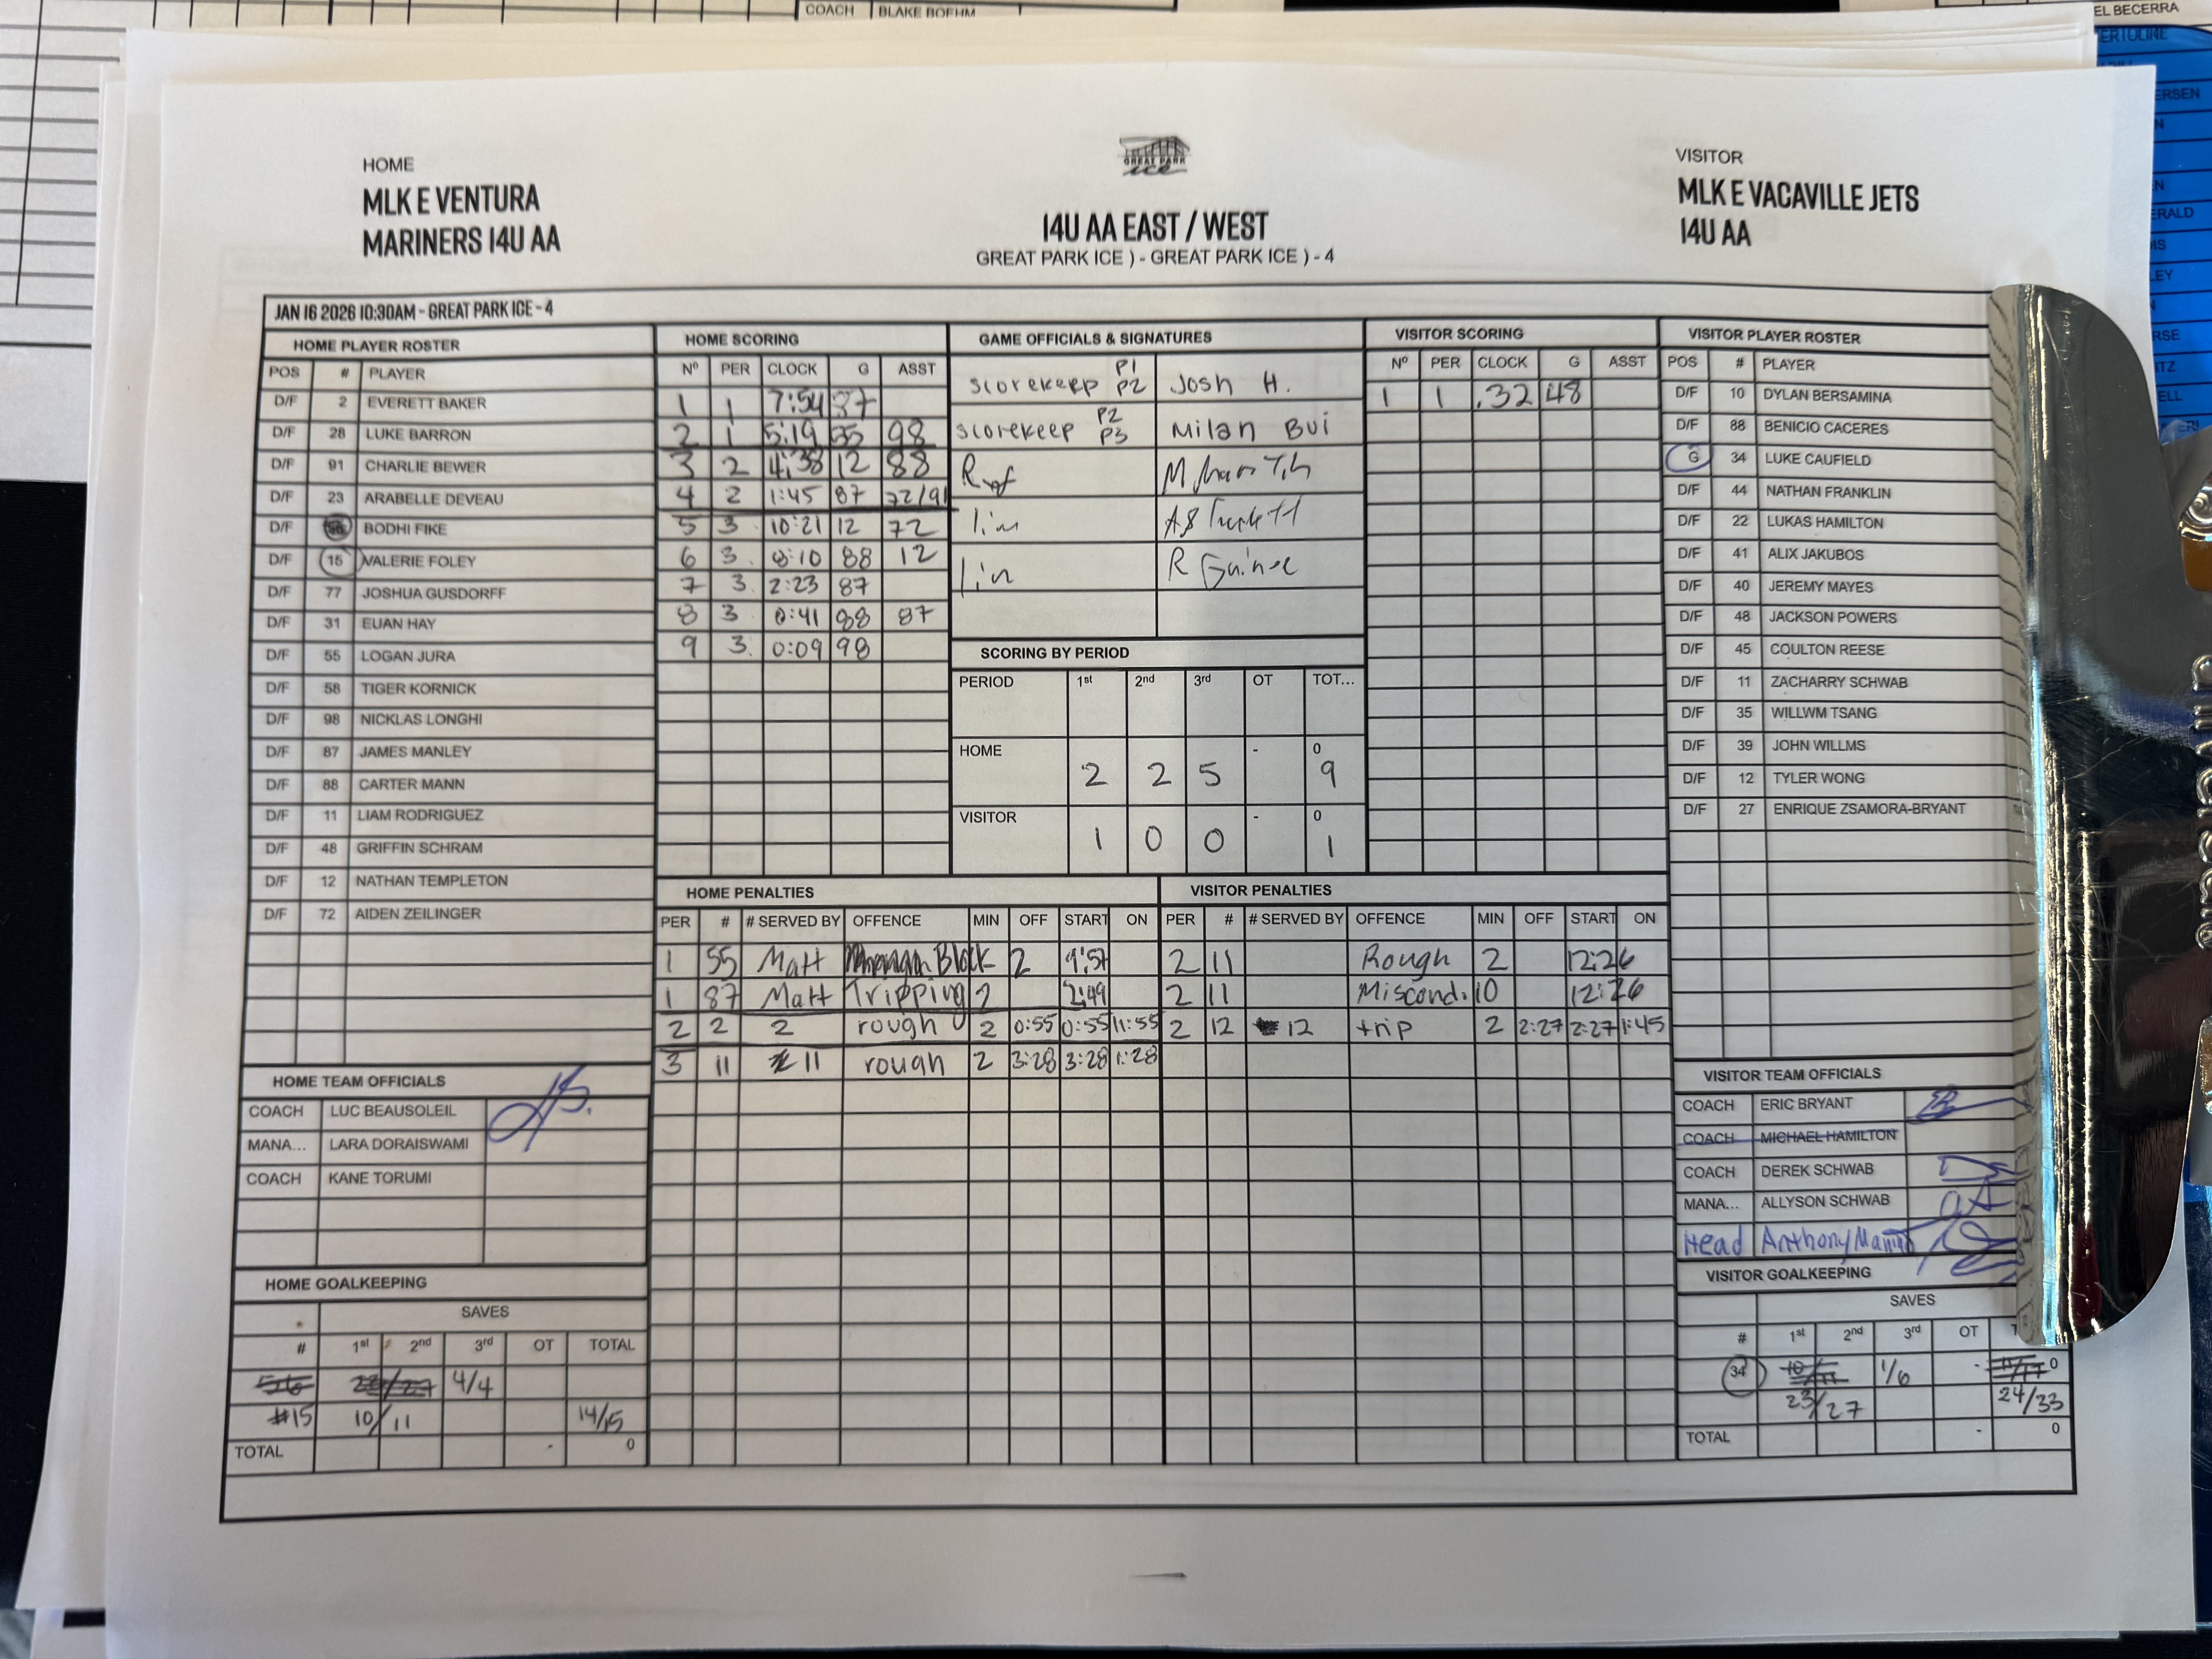 COACH BLAKE BOEHM
EL BECERRA
HOME
MLK E VENTURA
MARINERS 14U AA
GREAT PARK
ice
14U AA EAST / WEST
GREAT PARK ICE ) - GREAT PARK ICE ) - 4
VISITOR
MLK E VACAVILLE JETS
14U AA
JAN 16 2026 10:30AM - GREAT PARK ICE - 4
HOME PLAYER ROSTER
POS # PLAYER
D/F 2 EVERETT BAKER
D/F 28 LUKE BARRON
D/F 91 CHARLIE BEWER
D/F 23 ARABELLE DEVEAU
D/F BODHI FIKE
D/F 15 VALERIE FOLEY
D/F 77 JOSHUA GUSDORFF
D/F 31 EUAN HAY
D/F 55 LOGAN JURA
D/F 58 TIGER KORNICK
D/F 98 NICKLAS LONGHI
D/F 87 JAMES MANLEY
D/F 88 CARTER MANN
D/F 11 LIAM RODRIGUEZ
D/F 48 GRIFFIN SCHRAM
D/F 12 NATHAN TEMPLETON
D/F 72 AIDEN ZEILINGER
HOME SCORING
Nº PER CLOCK G ASST
1 1 7:54 87
2 1 5:19 55 98
3 2 4:38 12 88
4 2 1:45 87 72/91
5 3 10:21 12 72
6 3 8:10 88 12
7 3 2:23 87
8 3 0:41 98 87
9 3 0:09 98
GAME OFFICIALS & SIGNATURES
scorekeep P1 P2 Josh H.
scorekeep P2 P3 Milan Bui
Ref
lin
Lin
SCORING BY PERIOD
PERIOD 1st 2nd 3rd OT TOT...
HOME 2 2 5 - 0 9
VISITOR 1 0 0 - 0 1
VISITOR SCORING
Nº PER CLOCK G ASST
1 1 .32 48
VISITOR PLAYER ROSTER
POS # PLAYER
D/F 10 DYLAN BERSAMINA
D/F 88 BENICIO CACERES
G 34 LUKE CAUFIELD
D/F 44 NATHAN FRANKLIN
D/F 22 LUKAS HAMILTON
D/F 41 ALIX JAKUBOS
D/F 40 JEREMY MAYES
D/F 48 JACKSON POWERS
D/F 45 COULTON REESE
D/F 11 ZACHARRY SCHWAB
D/F 35 WILLWM TSANG
D/F 39 JOHN WILLMS
D/F 12 TYLER WONG
D/F 27 ENRIQUE ZSAMORA-BRYANT
HOME PENALTIES
PER # # SERVED BY OFFENCE MIN OFF START ON
1 55 Matt Block 2 1:57
1 87 Matt Tripping 2 2:49
2 2 2 rough 2 0:55 0:55 11:55
3 11 11 rough 2 3:28 3:28 1:28
VISITOR PENALTIES
PER # # SERVED BY OFFENCE MIN OFF START ON
2 11 Rough 2 12:26
2 11 Miscond. 10 12:26
2 12 12 trip 2 2:27 2:27 1:45
HOME TEAM OFFICIALS
COACH LUC BEAUSOLEIL
MANA... LARA DORAISWAMI
COACH KANE TORUMI
HOME GOALKEEPING
SAVES
# 1st 2nd 3rd OT TOTAL
56 23/27 4/4
#15 10/11 14/15
TOTAL - 0
VISITOR TEAM OFFICIALS
COACH ERIC BRYANT
COACH MICHAEL HAMILTON
COACH DEREK SCHWAB
MANA... ALLYSON SCHWAB
Head Anthony
VISITOR GOALKEEPING
SAVES
# 1st 2nd 3rd OT T
34 10/11 1/6 - 11/17 0
23/27 24/33
TOTAL - 0